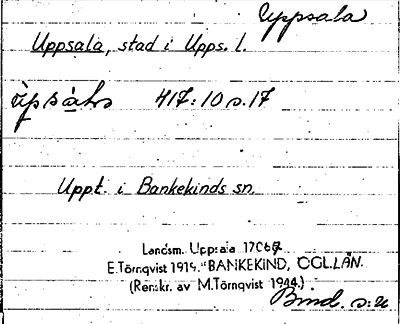 Uppsala
Uppsala, stad i Upps. l.
417: 10 s. 17
Uppt. i Bankekinds sn.
Landsm. Uppsala
E. Törnqvist 1914. "BANKEKIND, ÖGL. LÄN.
(Renskr. av M. Törnqvist 1944.)